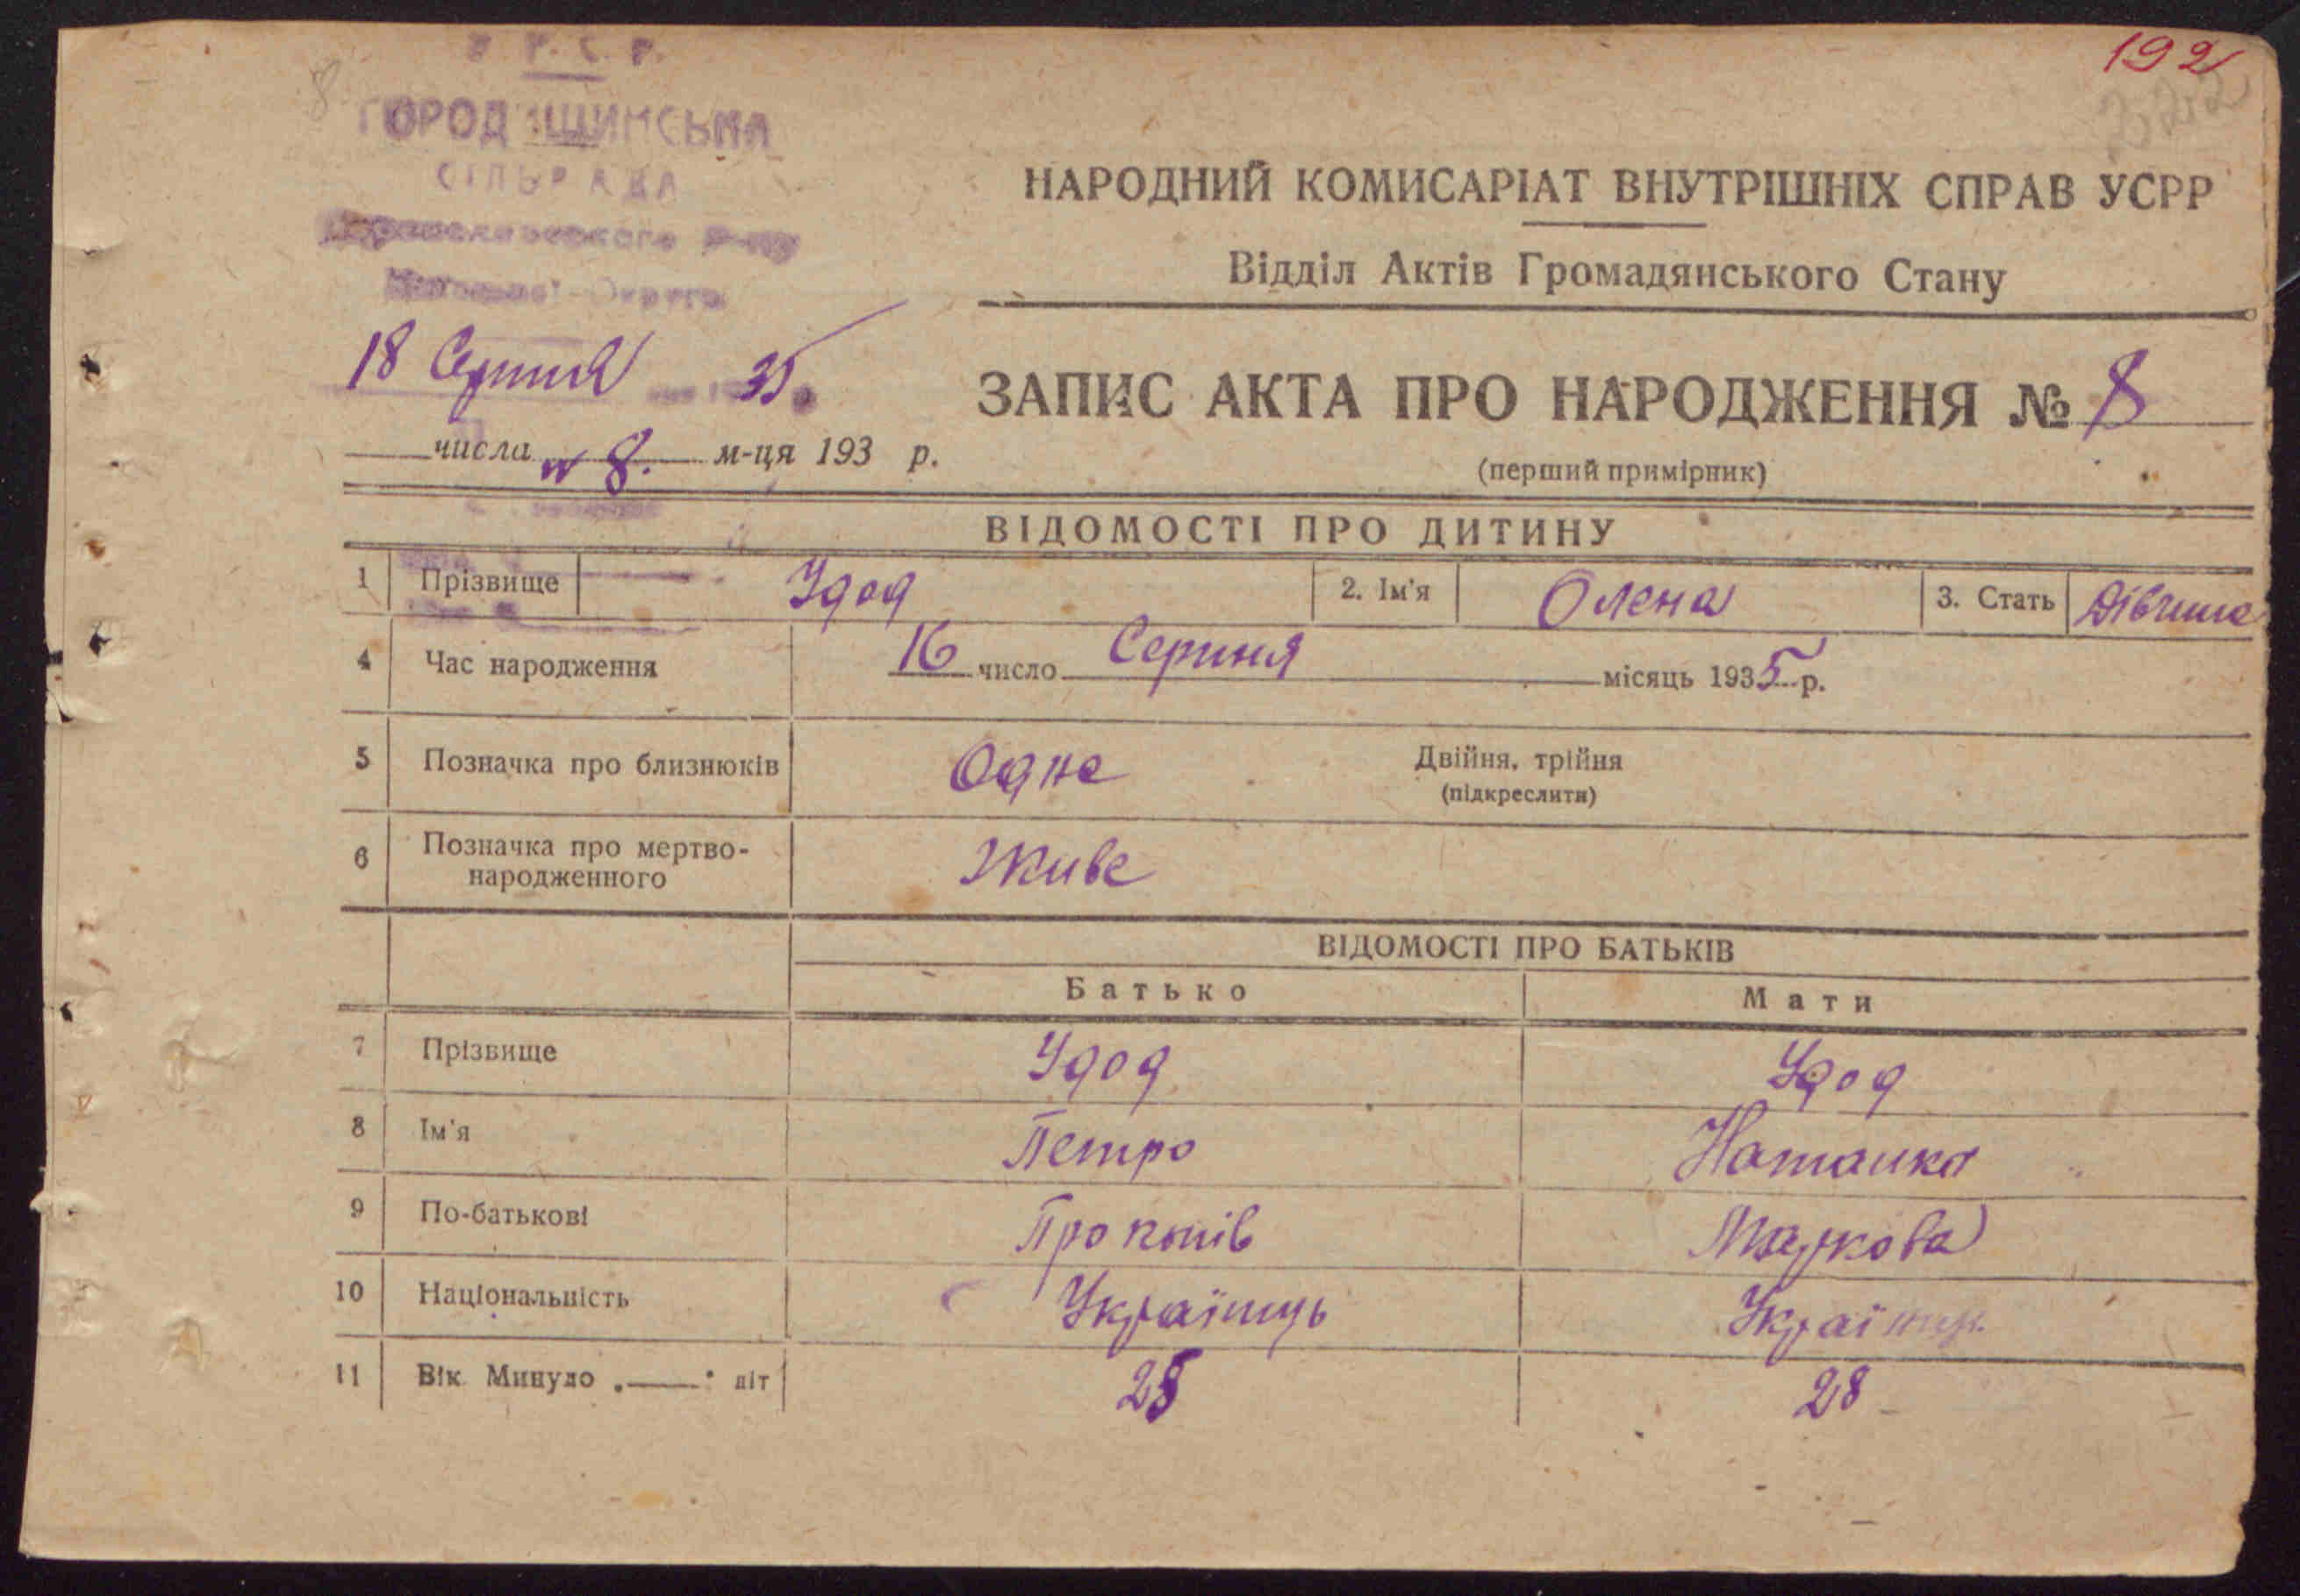 192
222
У. Р. С. Р.
ГОРОДИЩИНСЬКА
СІЛЬРАДА
Округи
НАРОДНИЙ КОМИСАРІАТ ВНУТРІШНІХ СПРАВ УСРР
Відділ Актів Громадянського Стану
18 Серпня 35
ЗАПИС АКТА ПРО НАРОДЖЕННЯ № 8
числа № 8. м-ця 193 р.
(перший примірник)
ВІДОМОСТІ ПРО ДИТИНУ
1 Прізвище Удод 2. Ім'я Олена 3. Стать Дівчина
4 Час народження 16 число Серпня місяць 1935 р.
5 Позначка про близнюків Одне Двійня, трійня
(підкреслити)
6 Позначка про мертво-
народженного Живе
ВІДОМОСТІ ПРО БАТЬКІВ
Батько Мати
7 Прізвище Удод Удод
8 Ім'я Петро Наталка
9 По-батькові Прокопів Маркова
10 Національність Українць Українк.
11 Вік Минуло „——" літ 25 28